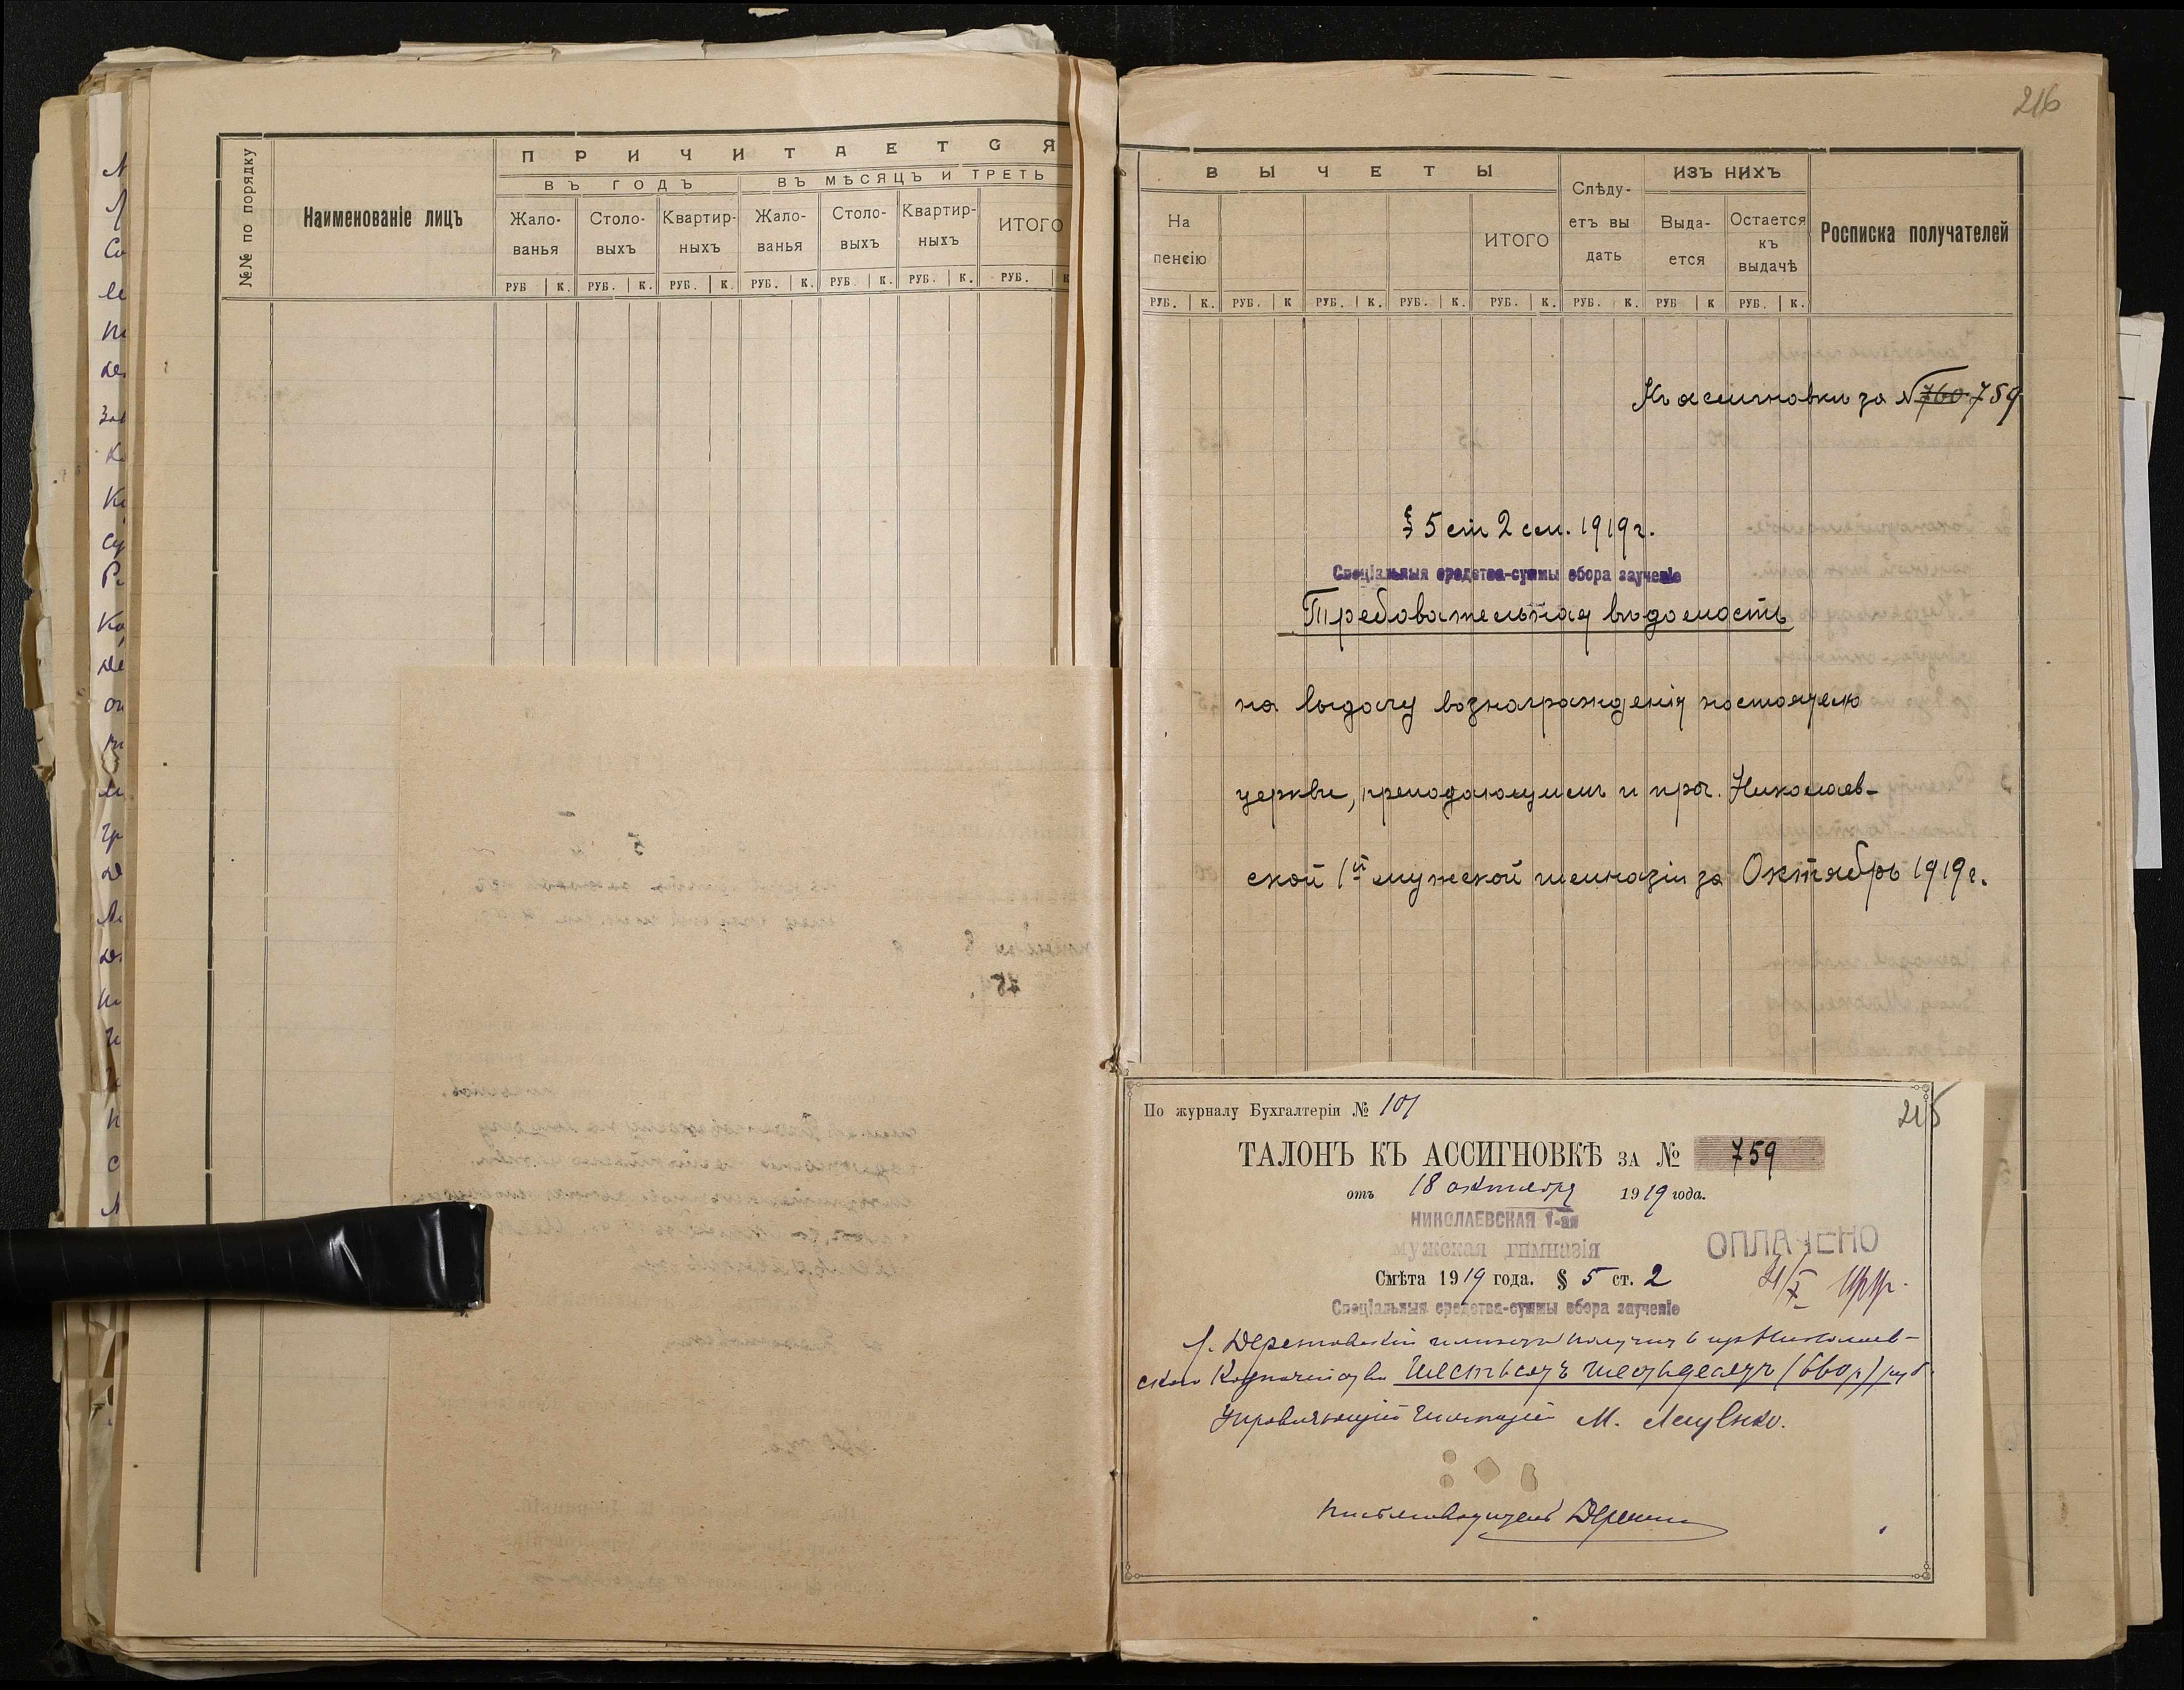 216
№№ по порядку
Наименованіе лицъ
ПРИЧИТАЕТСЯ
ВЪ ГОДЪ
ВЪ МѢСЯЦЪ И ТРЕТЬ
Жало-
ванья
Столо-
выхъ
Квартир-
ныхъ
Жало-
ванья
Столо-
выхъ
Квартир-
ныхъ
ИТОГО
РУБ К. РУБ. К. РУБ. К. РУБ. К. РУБ. К. РУБ. К. РУБ. К
ВЫЧЕТЫ
На
пенсію
ИТОГО
Слѣду-
етъ вы
дать
ИЗЪ НИХЪ
Выда-
ется
Остается
къ
выдачѣ
Росписка получателей
РУБ. К. РУБ. К РУБ. К. РУБ. К. РУБ. К. РУБ. К. РУБ К РУБ. К.
Къ ассигновки за № 760 759
§ 5 ст 2 см. 1919 г.
Спеціальныя средства-суммы сбора заученіе
Требовательная вѣдомость
на выдачу вознагражденія настоятелю
церкви, преподающимъ и проч. Николаев-
ской 1й мужской гимназіи за Октябрь 1919 г.
По журналу Бухгалтеріи № 101
215
ТАЛОНЪ КЪ АССИГНОВКѢ ЗА № 759
отъ 18 октября 1919 года.
НИКОЛАЕВСКАЯ 1-ая
мужская гимназія
ОПЛАЧЕНО
Смѣта 1919 года. § 5 ст. 2
21/X
Спеціальныя средства-суммы сбора заученіе
получить изъ Николаев-
скаго Казначейства Шестьсотъ шестьдесятъ (660 р) руб.
Управляющій гимназіей М.
Письмоводитель